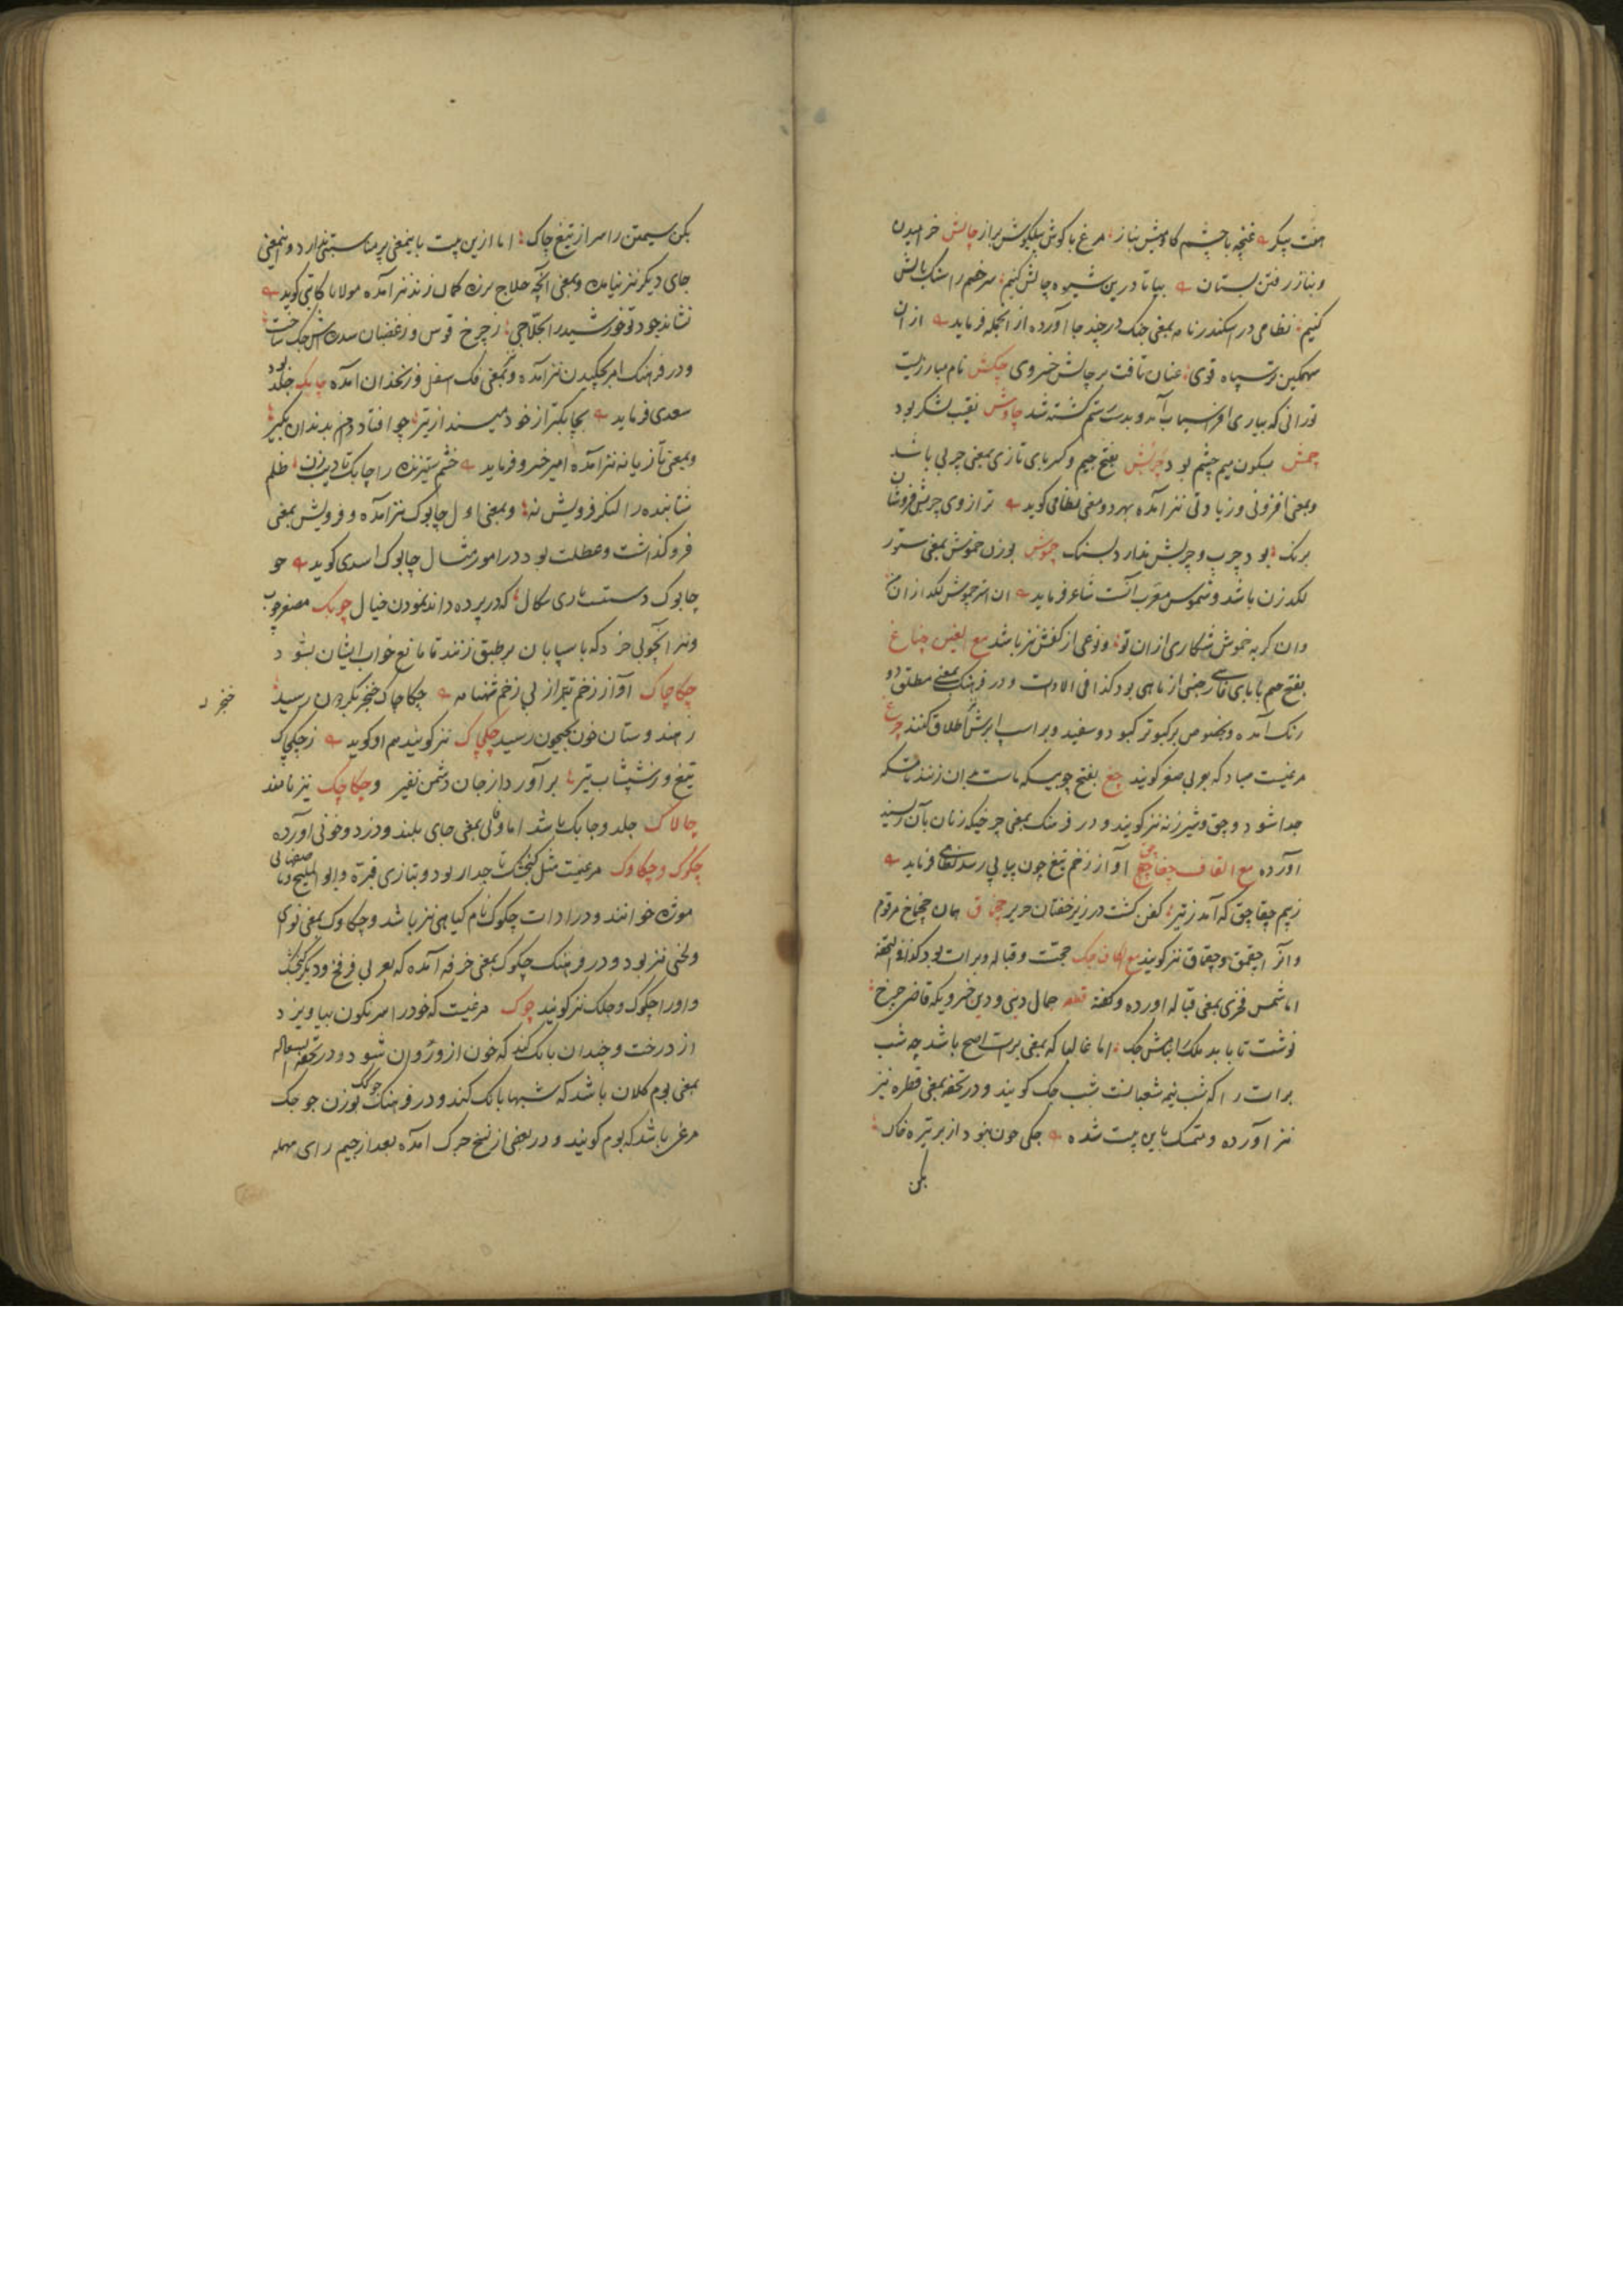 هفت پیکر غنچه با چشم کاومیش بناز مرغ با کوش پیلکوش براز چالش خرامیدن
و بناز رفتن بستان بیا تا درین شیوه چالش کنیم سر خصم را سنک بالش
کنیم نظامی در اسکندرنامه بمعنی جنک در چند جا آورده از انجمله فرماید از ان
سهمکین تر سپاه قوی عنان تافت بر چالش خسروی چکش نام مبارزیست
تورانی که بیاری افراسیاب آمد و بدست رستم کشته شد چاوش نقیب لشکر بود
چمش بسکون میم چشم بود چربش بفتح جیم و کسر بای تازی بمعنی چربی باشد
و بمعنی افزونی و زیادتی نیز آمده بهر دو معنی نظامی کوید ترازوی چربش فروشان
برنک بود چرب و چربش ندارد بسنک چموش بوزن خموش بمعنی ستور
لکدزن باشد و شموس معرب آنست شاعر فرماید ان استر چموش لکدزن ازان
وان کربه خموش شکاری ازان تو و نوعی از کفش نیز باشد مع الغین چناغ
بفتح جیم با بای فارسی جنسی از ماهی بود کذا فی الادات و در فرهنک بمعنی مطلق دو
رنک آمده و بخصوص بر کبوتر کبود و سفید و بر اسپ ابرش اطلاق کنند چرغ
مرغیست صیاد که بعربی صقر کویند چغ بفتح چوبیکه ماست بان زنند تا مسکه
جدا شود و چق و شیرزنه نیز کویند و در فرهنک بمعنی چرخیکه زنان بآن ریسند
آورده مع القاف چقاچق آواز زخم تیغ چون پیاپی رسد نظامی فرماید
ز بیم چقاچق که آمد ز تیر کفن کشت در زیر خفتان حریر چخماق همان چخماخ مرقوم
و آنرا چقمق و چقماق نیز کویند مع الکاف چک حجت و قباله و برات بود کذا فی التحفه
اما شمس فخری بمعنی قباله اورده و کفته قطعه جمال دینی و دین خسرویکه قاضی چرخ
نوشت تا بابد ملک را بنامش چک اما غالبا که بمعنی برات اصح باشد چه شب
برات را که شب نیمه شعبانست شب چک کویند و در تحفه بمعنی قطره نیز
نیز آورده و متمسک باین بیت شده چکی خون نبود از بر تیره خاک
بکن
بکن سیمتن را سر از تیغ چاک اما ازین بیت باینمعنی پر مناسبتی ندارد و اینمعنی
جای دیکر نیز نیامده و بمعنی آنچه حلاج بزه کمان زند نیز آمده مولانا کاتبی کوید
نشاید جود تو خورشید را بحلاجی ز چرخ قوس و ز غضبان سدره اش چک ساخت
و در فرهنک امر بچکیدن نیز آمده و بمعنی فک اسفل و زنخدان آمده چابک جلد بود
سعدی فرماید بچابکتر از خود مینداز تیر چو افتاد دامن بدندان بکیر
و بمعنی تازیانه نیز آمده امیر خسرو فرماید خشم ستیزنده را چابک تادیب زن ظلم
شتابنده را لنکر فرویش نه و بمعنی اول چابوک نیز آمده و فرویش بمعنی
فروکذاشت و عطلت بود در امور مثال چابوک اسدی کوید چو
چابوک دستست بازی سکال که در پرده داند نمودن خیال چوبک مصغر چوب
و نیز انچوبی خرد که پاسبانان بر طبق زنند تا مانع خواب ایشان بشود
چکاچاک آواز زخم تیر از پی زخم شهنامه چکاچاک خنجر بکردون رسید
ز هندوستان خون بجیحون رسید چکچاک نیز کویند هم او کوید ز چکچاک
خنجر
تیغ و ز شپشاب تیر برآورد از جان دشمن نفیر و چکاچک نیز نامند
چالاک جلد و چابک باشد اما وفائی بمعنی جای بلند و دزد و خونی آورده
چکوک و چکاوک مرغیست مثل کنجشک تاجدار بود و بتازی قبره و ابو الملیح و بصفاهانی
موژه خوانند و در ادات چکوک نام کیاهی نیز باشد و چکاوک بمعنی نوای
و لحنی نیز بود و در فرهنک چکوک بمعنی خرفه آمده که بعربی فرفخ و دیکر کنجشک
و اورا چکوک و چلک نیز کویند چوک مرغیست که خود را سرنکون بیاویزد
از درخت و چندان بانک کند که خون ازو روان شود و در تحفة السعاده
بمعنی بوم کلان باشد که شبها بانک کند و در فرهنک چوکک بوزن چوچک
مرغی باشد که بوم کویند و در بعضی از نسخ چرک آمده بعد از جیم رای مهمله